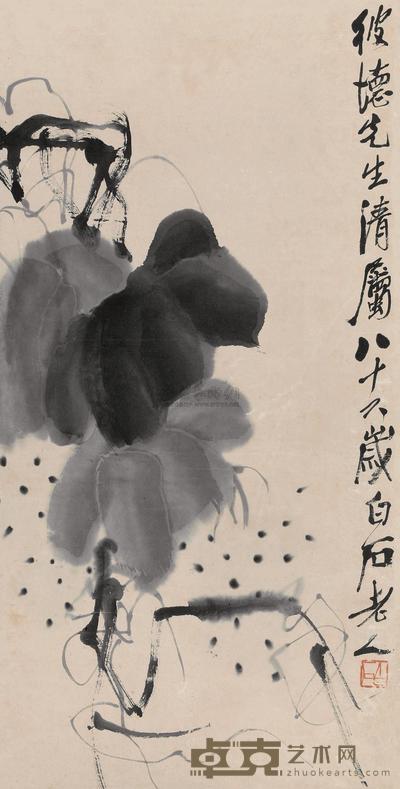 彼德先生清屬八十六歲白石老人
卓克艺术网
www.zhuokearts.com